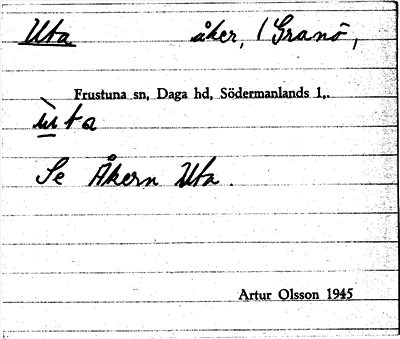 Uta åker, 1 Granö,
Frustuna sn, Daga hd, Södermanlands l,.
ùta
Se Åkern Uta.
Artur Olsson 1945